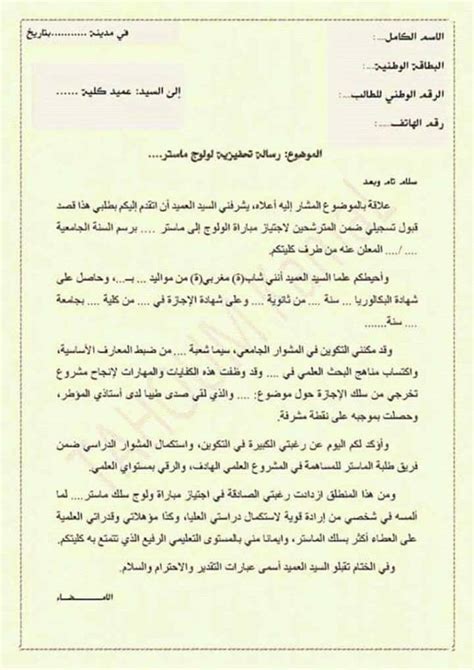 الاسم الكامل...:
في مدينة ...........بتاريخ
البطاقة الوطنية...:
الرقم الوطني للطالب...:
إلى السيد: عميد كلية ......
رقم الهاتف...:
الموضوع: رسالة تحفيزية لولوج ماستر....
سلام تام وبعد
علاقة بالموضوع المشار إليه أعلاه، يشرفني السيد العميد أن اتقدم إليكم بطلبي هذا قصد
قبول تسجيلي ضمن المترشحين لاجتياز مباراة الولوج إلى ماستر .... برسم السنة الجامعية
.... /.... المعلن عنه من طرف كليتكم.
وأحيطكم علما السيد العميد أنني شاب(ة) مغربي(ة) من مواليد ... بـ...، وحاصل على
شهادة البكالوريا ... سنة .... من ثانوية .... وعلى شهادة الإجازة في .... من كلية .... بجامعة
.... سنة.......
وقد مكنني التكوين في المشوار الجامعي، سيما شعبة .... من ضبط المعارف الأساسية،
واكتساب مناهج البحث العلمي في .... وقد وظفت هذه الكفايات والمهارات لإنجاح مشروع
تخرجي من سلك الإجازة حول موضوع: .... والذي لقي صدى طيبا لدى أستاذي المؤطر،
وحصلت بموجبه على نقطة مشرفة.
وأؤكد لكم اليوم عن رغبتي الكبيرة في التكوين، واستكمال المشوار الدراسي ضمن
فريق طلبة الماستر للمساهمة في المشروع العلمي الهادف، والرقي بمستواي العلمي.
ومن هذا المنطلق ازدادت رغبتي الصادقة في اجتياز مباراة ولوج سلك ماستر.... لما
ألمسه في شخصي من إرادة قوية لاستكمال دراستي العليا، وكذا مؤهلاتي وقدراتي العلمية
على العطاء أكثر بسلك الماستر، وايمانا مني بالمستوى التعليمي الرفيع الذي تتمتع به كليتكم.
وفي الختام تقبلو السيد العميد أسمى عبارات التقدير والاحترام والسلام.
الامـــــضـــاء